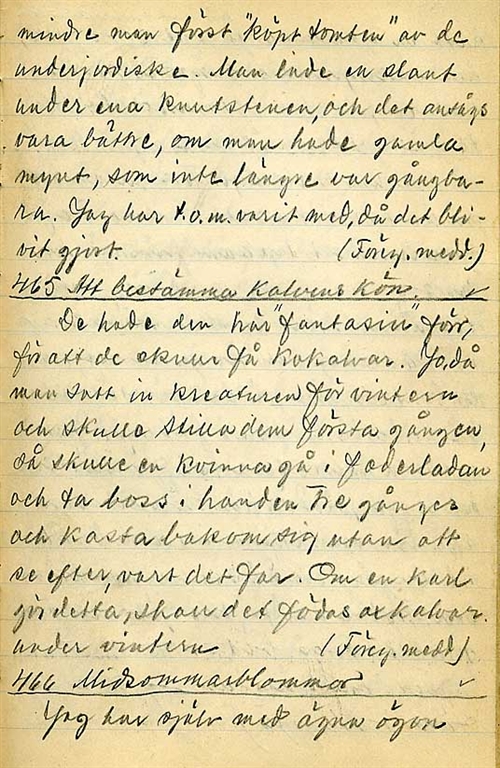 mindre man först "köpt tomten" av de
underjordiske. Man lade en slant
under ena knutstenen, och det ansågs
vara bättre, om man hade gamla
mynt, som inte längre var gångba-
ra. Jag har t.o.m. varit med, då det bli-
vit gjort. (Föreg. medd.)
465 Att bestämma kalvens kön.
De hade den här "fantasin" förr,
för att de skulle få kokalvar. Jo, då
man satt in kreaturen för vintern
och skulle stilla dem första gången,
då skulle en kvinna gå i foderladan
och ta boss i handen tre gånger
och kasta bakom sig utan att
se efter, vart det far. Om en karl
gör detta, skall det födas oxkalvar
under vintern (Föreg. medd.)
466 Midsommarblommor
Jag har själv med ägna ögon